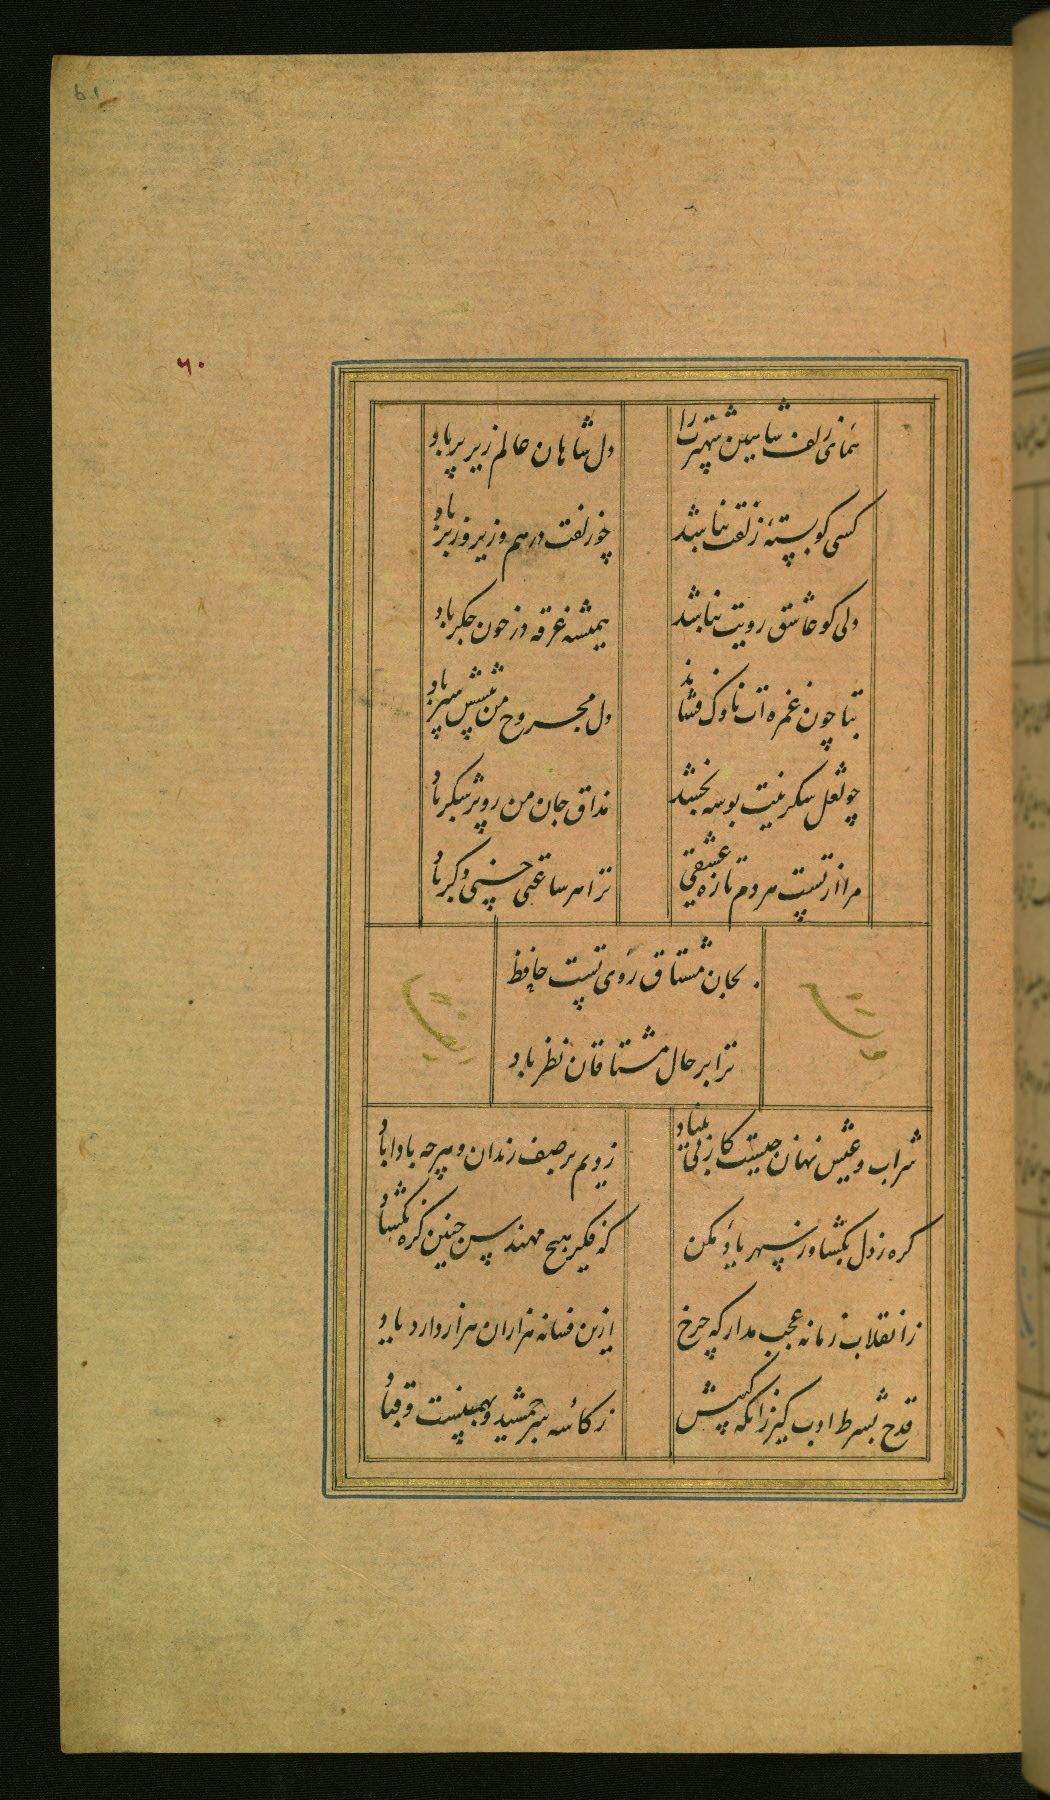 ۶۰
همای زلف شاهین شهپرت را
دل شاهان عالم زیر پر باد
کسی کو بستهٔ زلفت نباشد
چو زلفت درهم و زیر و زبر باد
دلی کو عاشق رویت نباشد
همیشه غرقه در خون جگر باد
بتا چون غمزه ات ناوک فشاند
دل مجروح من پیشش سپر باد
چو لعل شکرینت بوسه بخشد
مذاق جان من زو پر شکر باد
مرا از تست هر دم تازه عشقی
ترا هر ساعتی حسنی دگر باد
بجان مشتاق روی تست حافظ
ترا بر حال مشتاقان نظر باد
شراب و عیش نهان چیست کار بی بنیاد
زدیم بر صف رندان و هر چه بادا باد
گره ز دل بگشا وز سپهر یاد مکن
که فکر هیچ مهندس چنین گره نگشاد
ز انقلاب زمانه عجب مدار که چرخ
ازین فسانه هزاران هزار دارد یاد
قدح بشرط ادب گیر زانکه ترکیبش
ز کاسه سر جمشید و بهمنست و قباد